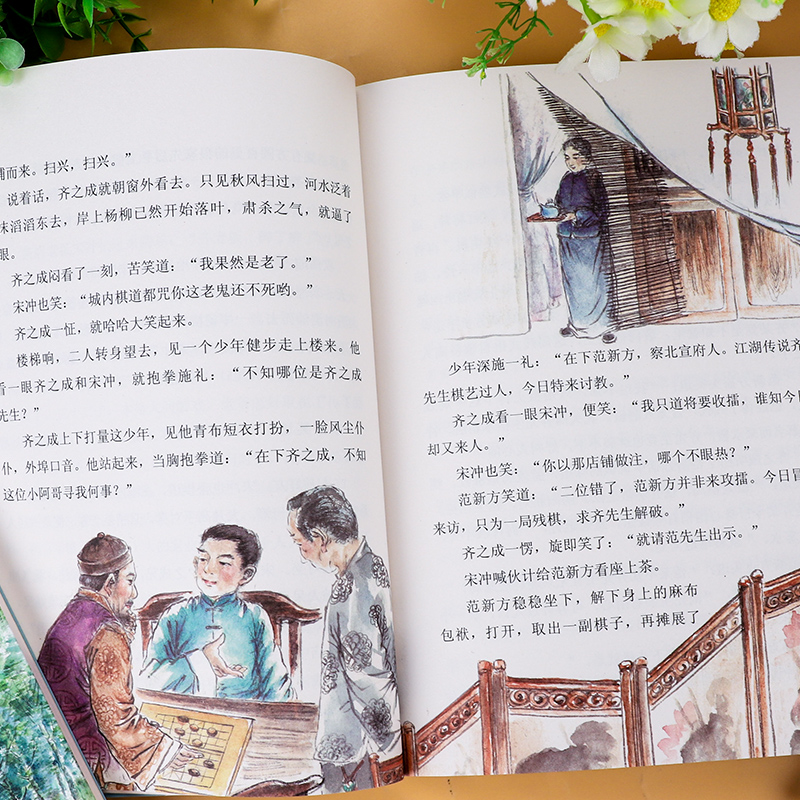 而来。扫兴，扫兴。”
说着话，齐之成就朝窗外看去。只见秋风扫过，河水泛着
沫滔滔东去，岸上杨柳已然开始落叶，肃杀之气，就逼了
眼。
齐之成闷看了一刻，苦笑道：“我果然是老了。”
宋冲也笑：“城内棋道都咒你这老鬼还不死哟。”
齐之成一怔，就哈哈大笑起来。
楼梯响，二人转身望去，见一个少年健步走上楼来。他
看一眼齐之成和宋冲，就抱拳施礼：“不知哪位是齐之成
先生？”
齐之成上下打量这少年，见他青布短衣打扮，一脸风尘仆
仆，外埠口音。他站起来，当胸抱拳道：“在下齐之成，不知
这位小阿哥寻我何事？”
少年深施一礼：“在下范新方，察北宣府人。江湖传说齐
先生棋艺过人，今日特来讨教。”
齐之成看一眼宋冲，便笑：“我只道将要收擂，谁知今日
却又来人。”
宋冲也笑：“你以那店铺做注，哪个不眼热？”
范新方笑道：“二位错了，范新方并非来攻擂。今日冒
来访，只为一局残棋，求齐先生解破。”
齐之成一愣，旋即笑了：“就请范先生出示。”
宋冲喊伙计给范新方看座上茶。
范新方稳稳坐下，解下身上的麻布
包袱，打开，取出一副棋子，再摊展了